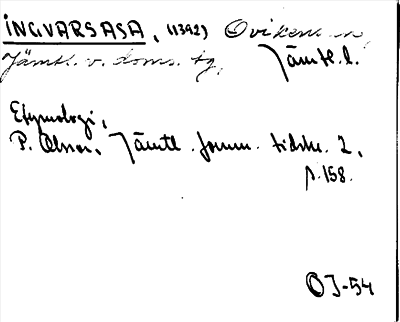 INGVARSÅSA, (1392) Ovikens sn,
Jämtl. v. doms. tg, Jämtl. l.
Etymologi,
P. Olsson, Jämtl. fornm. tidskr. 2,
s. 158.
OJ-54